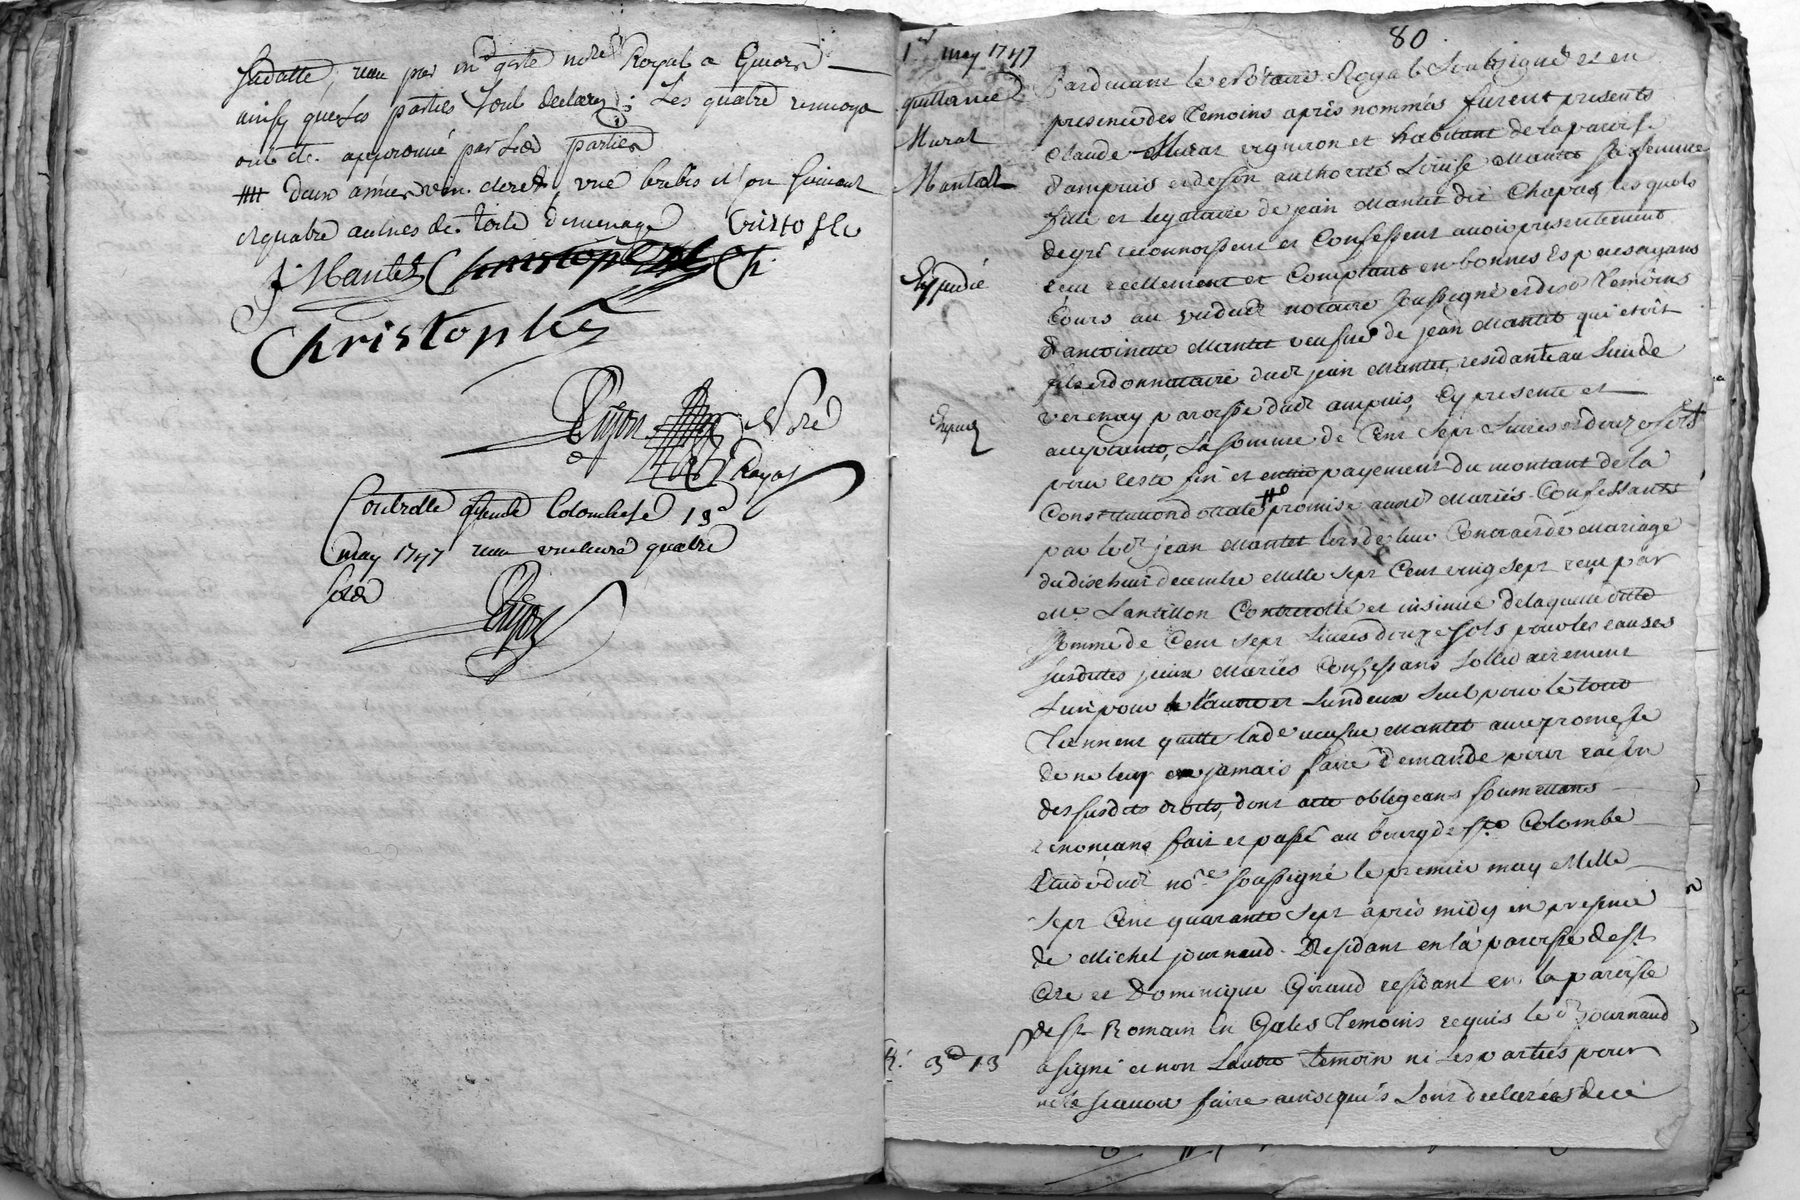 ainsy que les parties l'ont declaré; Les quatre renvoys
ont été approuvé par lesd parties
et quatre aulnes de toile de menage Cristofle
J: Mantel Christophle Ch
Christophle
Nore
Royal
Controllé Ste Colombe le 13e
may 1747 receu quatre
sols
80
1er may 1747
quittance
Murat
Mantel
Expedié
Expedié
Pardevant le Notaire Royal soubsigné et en
presence des temoins après nommés furent presents
Claude Murat vigneron et habitant de la paroisse
d'ampuis et de son authorité Louise Mantel sa femme
fille et legataire de jean Mantel dit Chapas, lesquels
de gré reconnoissent et Confessent avoir presentement
receu reellement et Comptant en bonnes Especes ayans
Cours au veu dud notaire soussigné et desd temoins
d'antoinette Mantel veufve de jean Mantel qui etoit
fils et donnataire dud jean Mantel, residante au lieu de
verenay paroisse dud ampuis, Cy presente et
acceptante, la somme de Cent sept livres et douze sols
pour reste fin et entier payement du montant de la
Constitution dotale promise ausd Mariés Confessants
par led jean Mantel lors de leur Contract de Mariage
du dix huit decembre Mille sept Cent vingt sept receu par
Me Lantillon Controllé et insinué de laquelle ditte
somme de Cent sept livres douze sols pour les causes
susdittes yceux Mariés Confessans sollidairement
l'un pour l'autre et l'un d'eux seul pour le tout
tiennent quitte lade veufve Mantel avec promesse
de ne leur en jamais faire demande pour raison
des susdits droits, dont acte obligeans soumettans
renonçans fait et passé au bourg de Ste Colombe
Etude dud nore soussigné le premier may Mille
sept Cent quarante sept après midy en presence
de Michel journaud Residant en la paroisse de St
Cire et Dominique Giraud residant en la paroisse
de St Romain En Gales temoins requis led journaud
a signé et non l'autre temoin ni les parties pour
ne le scavoir faire ainsi qu'ils l'ont declaré de ce